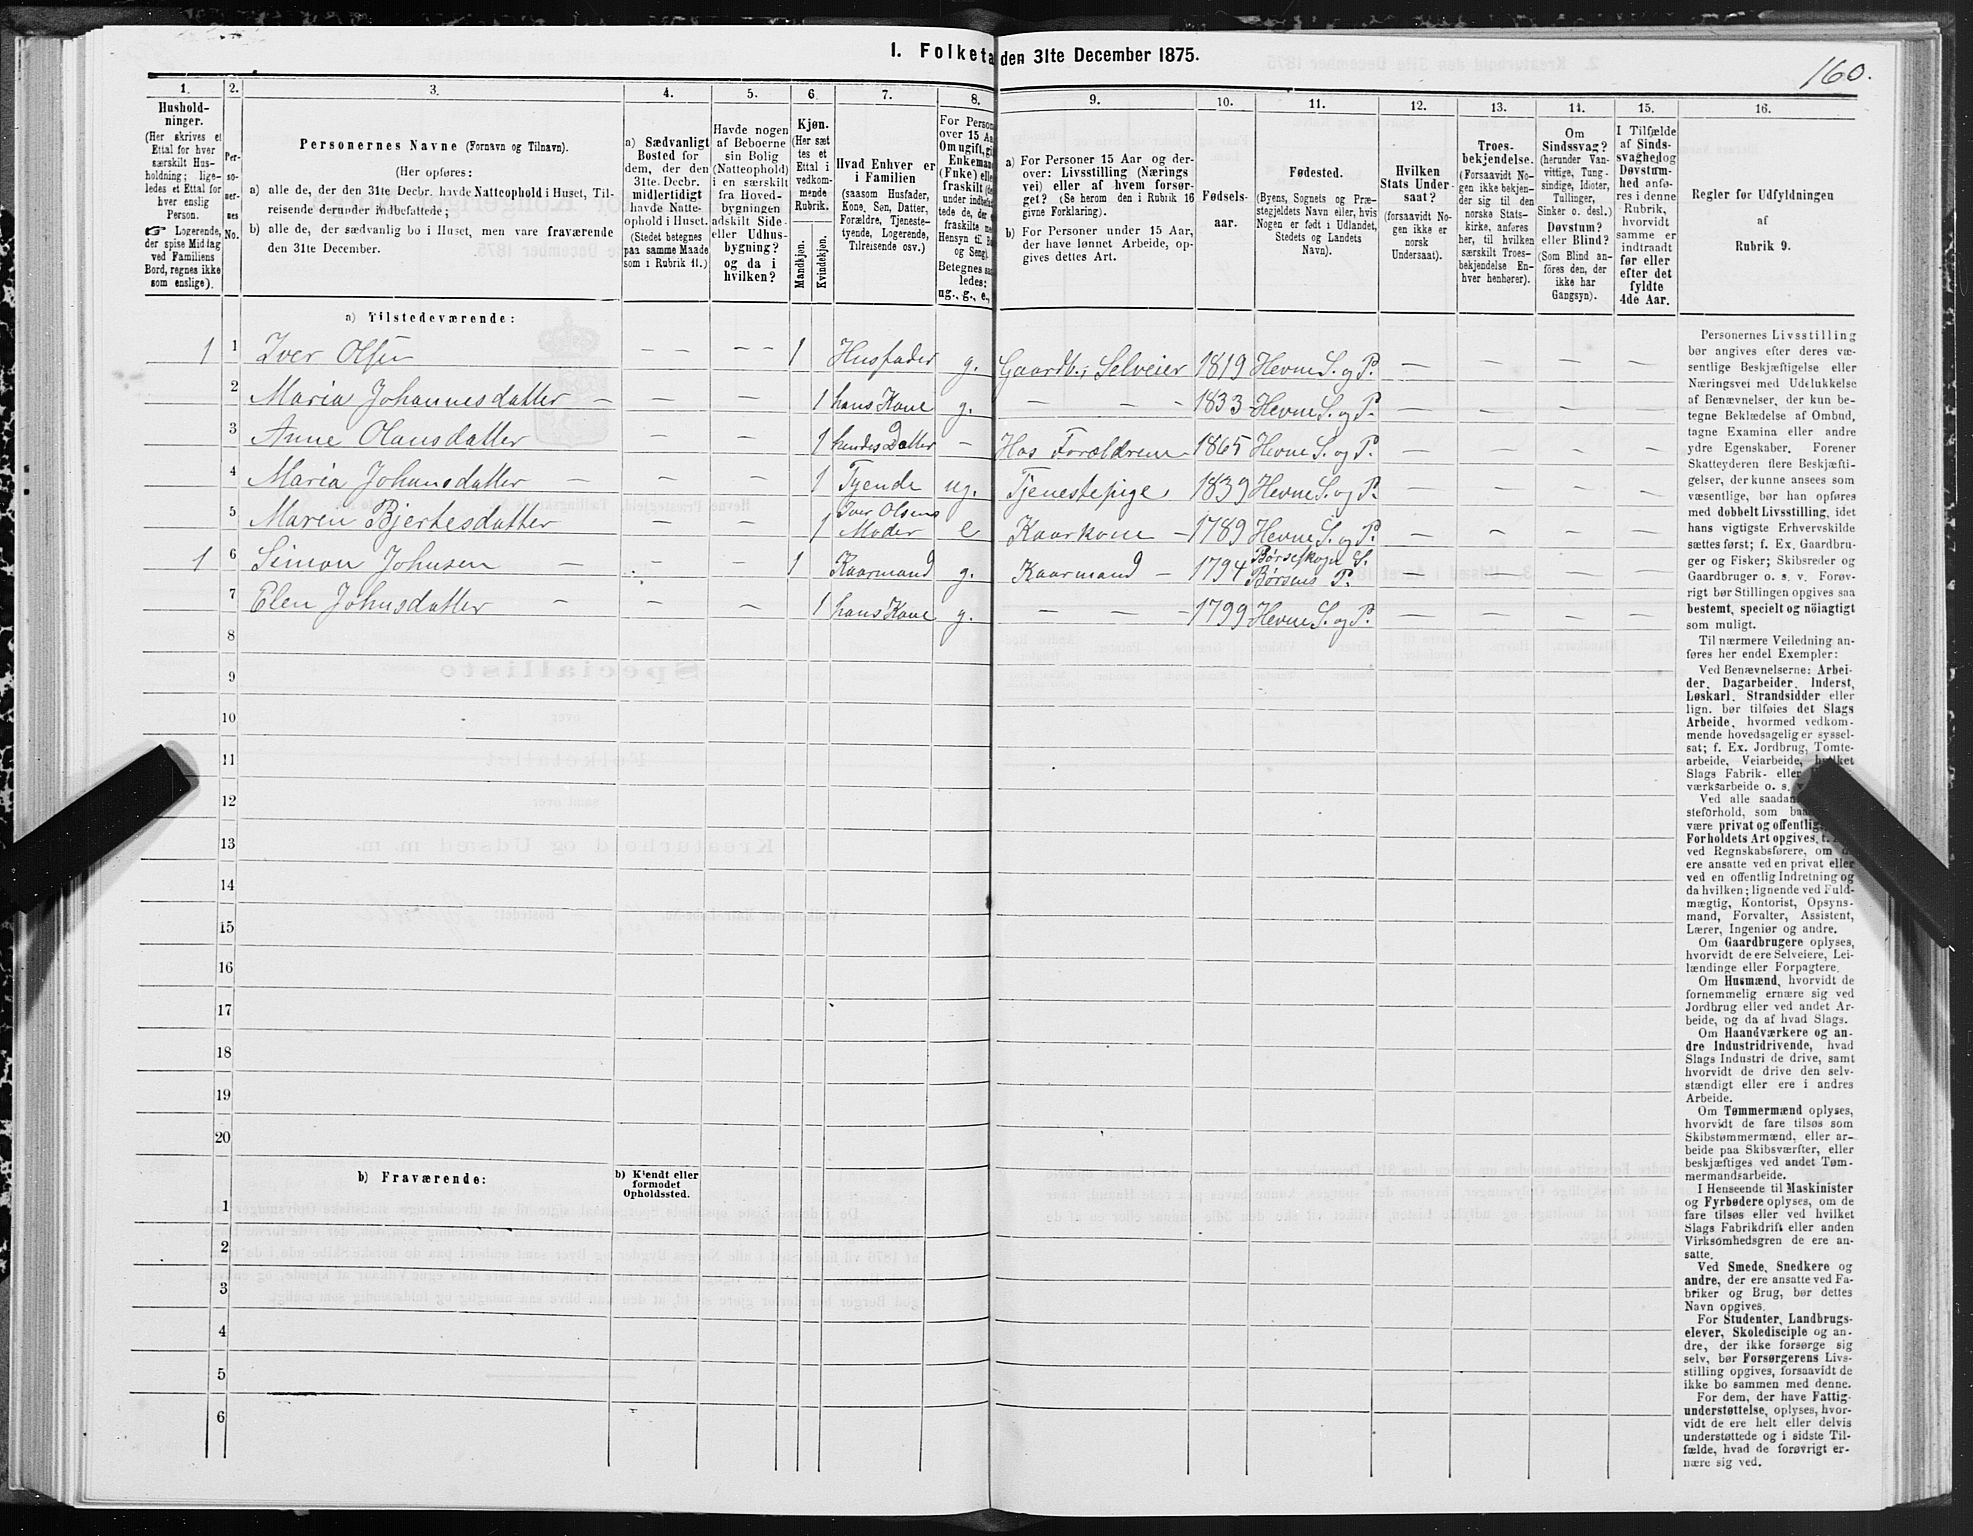 1. Folketa den 31te December 1875.
160.
1.
2.
3.
4.
5.
6.
7.
8.
9.
10.
11.
12.
13.
14.
15.
16.
Hushold-
ninger.
(Her skrives et
Ettal for hver
særskilt Hus-
holdning; lige-
ledes et Ettal for
hver enslig
Person.
☞ Logerende,
der spise Middag
ved Familiens
Bord, regnes ikke
som enslige).
Per-
so-
ner-
nes
No.
Personernes Navne (Fornavn og Tilnavn).
(Her opføres:
a) alle de, der den 31te Decbr. havde Natteophold i Huset, Til-
reisende derunder indbefattede;
b) alle de, der sædvanlig bo i Huset, men vare fraværende
den 31te December.
a) Sædvanligt
Bosted for
dem, der den
31te. Decbr.
midlertidigt
havde Natte-
ophold i Huset.
(Stedet betegnes
paa samme Maade
som i Rubrik 11.)
Havde nogen
af Beboerne
sin Bolig
(Natteophold)
i en særskilt
fra Hoved-
bygningen
adskilt Side-
eller Udhus-
bygning?
og da i
hvilken?
Kjøn.
(Her sæt
tes et
Ettal i
vedkom-
mende
Rubrik.
Mandkjøn.
Kvindekjøn.
Hvad Enhver er
i Familien
(saasom Husfader,
Kone, Søn, Datter,
Forældre, Tjeneste-
tyende, Logerende,
Tilreisende osv.)
For Person
over 15 Aa
Om ugift, gi
Enkemand
(Enke) elle
fraskilt (de
under indbefat
tede de, der
fraskilte me
Hensyn til B
og Seng).
Betegnes saa
ledes:
ug., g., e.,
a) For Personer 15 Aar og der-
over: Livsstilling (Nærings
vei) eller af hvem forsør-
get? (Se herom den i Rubrik 16
givne Forklaring).
b) For Personer under 15 Aar,
der have lønnet Arbeide, op-
gives dettes Art.
Fødsels-
aar.
Fødested.
(Byens, Sognets og Præ-
stegjeldets Navn eller, hvis
Nogen er født i Udlandet,
Stedets og Landets
Navn).
Hvilken
Stats Under-
saat?
(forsaavidt No-
gen ikke er
norsk
Undersaat).
Troes-
bekjendelse.
(Forsaavidt No-
gen ikke bekjen-
der sig til den
norske Stats-
kirke, anføres
her, til hvilken
særskilt Troes-
bekjendelse En-
hver henhører).
Om
Sindssvag?
(herunder Van-
vittige, Tung-
sindige, Idioter,
Tullinger,
Sinker o. desl.)
Døvstum?
eller Blind?
(Som Blind an-
føres den, der
ikke har
Gangsyn).
I Tilfælde
af Sinds-
svaghed og
Døvstum-
hed anfø-
res i denne
Rubrik,
hvorvidt
samme er
indtraadt
før eller
efter det
fyldte
4de Aar.
Regler for Udfyldningen
af
Rubrik 9.
a) Tilstedeværende:
1 1 Iver Olsen — — — — 1 Husfader g. Gaardb., Selveier 1819 Hevne S. og P. — — — —
2 Maria Johannesdatter — — — 1 hans Kone g. — — 1833 Hevne S. og P. — — — —
3 Anne Olausdatter — — 1 hendes Datter — Hos Forældrene 1865 Hevne S. og P. — — — —
4 Maria Johansdatter — — — 1 Tyende ug. Tjenestepige 1839 Hevne S. og P. — — — —
5 Maren Bjertesdatter — — 1 Iver Olsens Moder e Kaarkone — 1789 Hevne S. og P. — — — —
1 6 Simon Johnsen — — — 1 Kaarmand g. Kaarmand — 1794 Børseskogn S. Børsens P. — — — —
7 Elen Johnsdatter — — — 1 hans Kone g. — — — 1799 Hevne S. og P. — — — —
8
9
10
11
12
13
14
15
16
17
18
19
20
b) Fraværende:
b) Kjendt eller
formodet
Opholdssted.
1
2
3
4
5
6
Personernes Livsstilling
bør angives efter deres væ-
sentlige Beskjæftigelse eller
Næringsvei med Udelukkelse
af Benævnelser, der kun be-
tegne Beklædelse af Ombud,
tagne Examina eller andre
ydre Egenskaber. Forener
Skatteyderen flere Beskjæfti-
gelser, der kunne ansees som
væsentlige, bør han opføres
med dobbelt Livsstilling, idet
hans vigtigste Erhvervskilde
sættes først; f. Ex. Gaardbru-
ger og Fisker; Skibsreder og
Gaardbruger o. s. v. Forøv-
rigt bør Stillingen opgives saa
bestemt, specielt og nöiagtigt
som muligt.
Til nærmere Veiledning an-
føres her endel Exempler:
Ved Benævnelserne: Arbei-
der, Dagarbeider, Inderst,
Løskarl, Strandsidder eller
lign. bør tilføies det Slags
Arbeide, hvormed vedkom-
mende hovedsagelig er syssel-
sat; f. Ex. Jordbrug, Tomte-
arbeide, Veiarbeide, hvilket
Slags Fabrik- eller
værksarbeide o. s. v.
Ved alle saadan
steforhold, som
være privat og offentlig,
Forholdets Art opgives, t.
ved Regnskabsførere, om
ere ansatte ved en privat eller
ved en offentlig Indretning og
da hvilken; lignende ved Fuld-
mægtig, Kontorist, Opsyns-
mand, Forvalter, Assistent,
Lærer, Ingeniør og andre.
Om Gaardbrugere oplyses,
hvorvidt de ere Selveiere, Lei-
lændinge eller Forpagtere.
Om Husmænd, hvorvidt de
fornemmelig ernære sig ved
Jordbrug eller ved andet Ar-
beide, og da af hvad Slags.
Om Haandværkere og an-
dre Industridrivende, hvad
Slags Industri de drive, samt
hvorvidt de drive den selv-
stændigt eller ere i andres
Arbeide.
Om Tømmermænd oplyses,
hvorvidt de fare tilsøs som
Skibstømmermænd, eller ar-
beide paa Skibsværfter, eller
beskjæftiges ved andet Tøm-
mermandsarbeide.
I Henseende til Maskinister
og Fyrbødere oplyses, om de
fare tilsøs eller ved hvilket
Slags Fabrikdrift eller anden
Virksomhedsgren de ere an-
satte.
Ved Smede, Snedkere og
andre, der ere ansatte ved Fa-
briker og Brug, bør dettes
Navn opgives.
For Studenter, Landbrugs-
elever, Skoledisciple og an-
dre, der ikke forsørge sig
selv, bør Forsørgerens Livs-
stilling opgives, forsaavidt de
ikke bo sammen med denne.
For dem, der have Fattig-
understøttelse, oplyses, hvor-
vidt de ere helt eller delvis
understøttede og i sidste Til-
fælde, hvad de forøvrigt er-
nære sig ved.